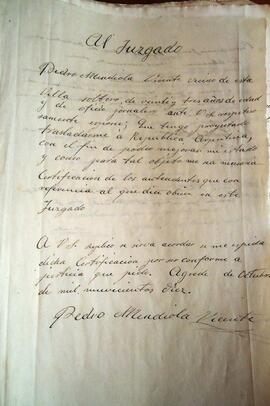 Al Juzgado
Pedro Mendiola Vicente vecino de esta
Villa soltero, de veinte y tres años de edad
y de oficio jornalero ante V.S. respetuo
samente expone: Que tengo proyectado
trasladarme a República Argentina,
con el fin de poder mejorar mi estado
y como para tal objeto me es necesaria
Certificación de los antecedentes que con
referencia al que dice obren en este
Juzgado
A V.S. suplico se sirva acordar se me expida
dicha Certificación por ser conforme a
justicia que pido. Agreda de Octubre
de mil novecientos diez.
Pedro Mendiola Vicente